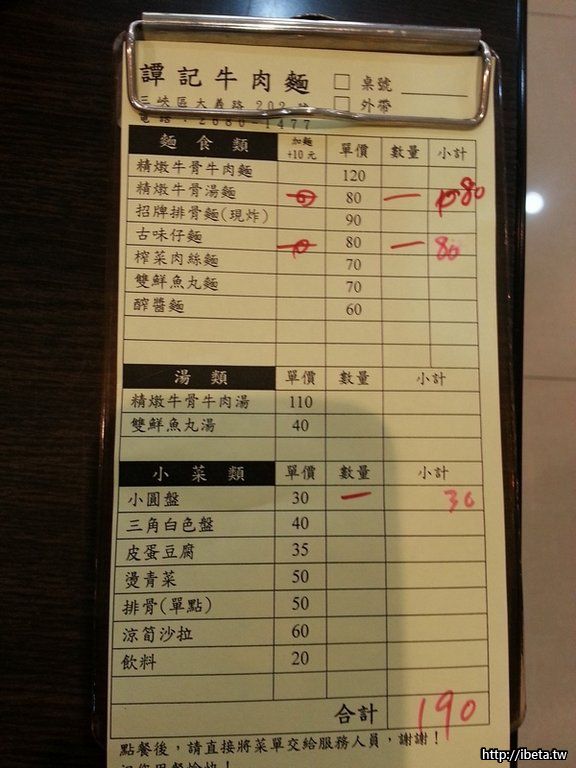 譚記牛肉麵 □ 桌號
三峽區大義路202 □ 外帶
電話：2680-1477
麵食類 加麵+10元 單價 數量 小計
精燉牛骨牛肉麵 120
精燉牛骨湯麵 80 一 80
招牌排骨麵(現炸) 90
古味仔麵 80 一 80
榨菜肉絲麵 70
雙鮮魚丸麵 70
醡醬麵 60
湯類 單價 數量 小計
精燉牛骨牛肉湯 110
雙鮮魚丸湯 40
小菜類 單價 數量 小計
小圓盤 30 一 30
三角白色盤 40
皮蛋豆腐 35
燙青菜 50
排骨(單點) 50
涼筍沙拉 60
飲料 20
合計 190
點餐後，請直接將菜單交給服務人員，謝謝！
祝您用餐愉快！
http://ibeta.tw